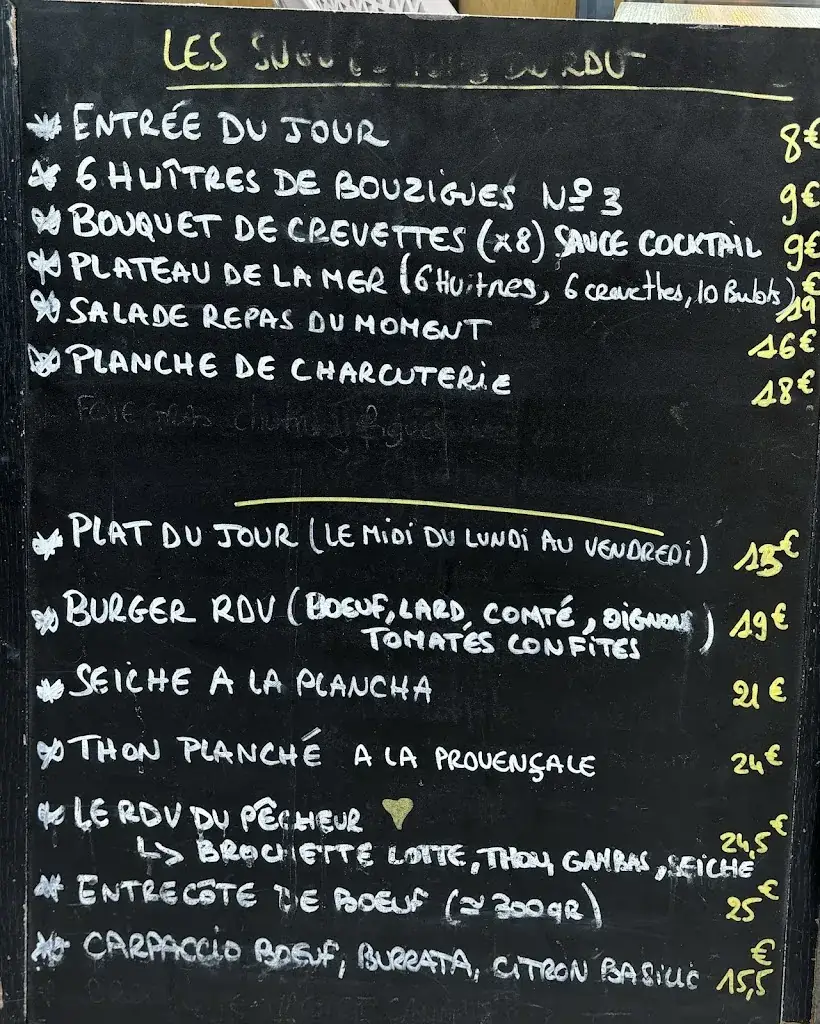 LES DU RDV
ENTRÉE DU JOUR 8€
6 HUÎTRES DE BOUZIGUES Nº 3 9€
BOUQUET DE CREVETTES (x8) SAUCE COCKTAIL 9€
PLATEAU DE LA MER (6 Huitres, 6 crevettes, 10 Bulots) 19€
SALADE REPAS DU MOMENT 16€
PLANCHE DE CHARCUTERIE 18€
FOIE GRAS
PLAT DU JOUR (LE MIDI DU LUNDI AU VENDREDI) 15€
BURGER RDV (BOEUF, LARD, COMTÉ, OIGNONS 19€
TOMATES CONFITES)
SEICHE A LA PLANCHA 21€
THON PLANCHÉ A LA PROVENÇALE 24€
LE RDV DU PÊCHEUR
↳ BROCHETTE LOTTE, THON, GAMBAS, SEICHE 24,5€
ENTRECÔTE DE BOEUF (≃ 300gR) 25€
CARPACCIO BOEUF, BURRATA, CITRON BASILIC 15,5€